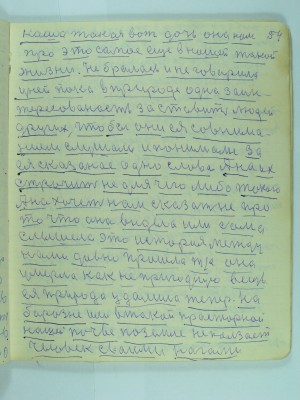 наша такая вот дочь она нам 57
про это самое еще в нашей такой
жизни. не бралась и не говорила
у ней была в природе одна заин-
тересованость заставить людей
других чтобы они ея со внима-
нием слушали и понимали за
ея сказаное одно слова Она их
строчит не для чего либо такого
Она хочет нам сказать не про
то что она видела или сама
слышела это история между
нами давно прошла т/е она
умерла как не пригодную вещь
ея природа удалила тепер. На
в такой просторной
нашей почве ползает
человек своими ногами